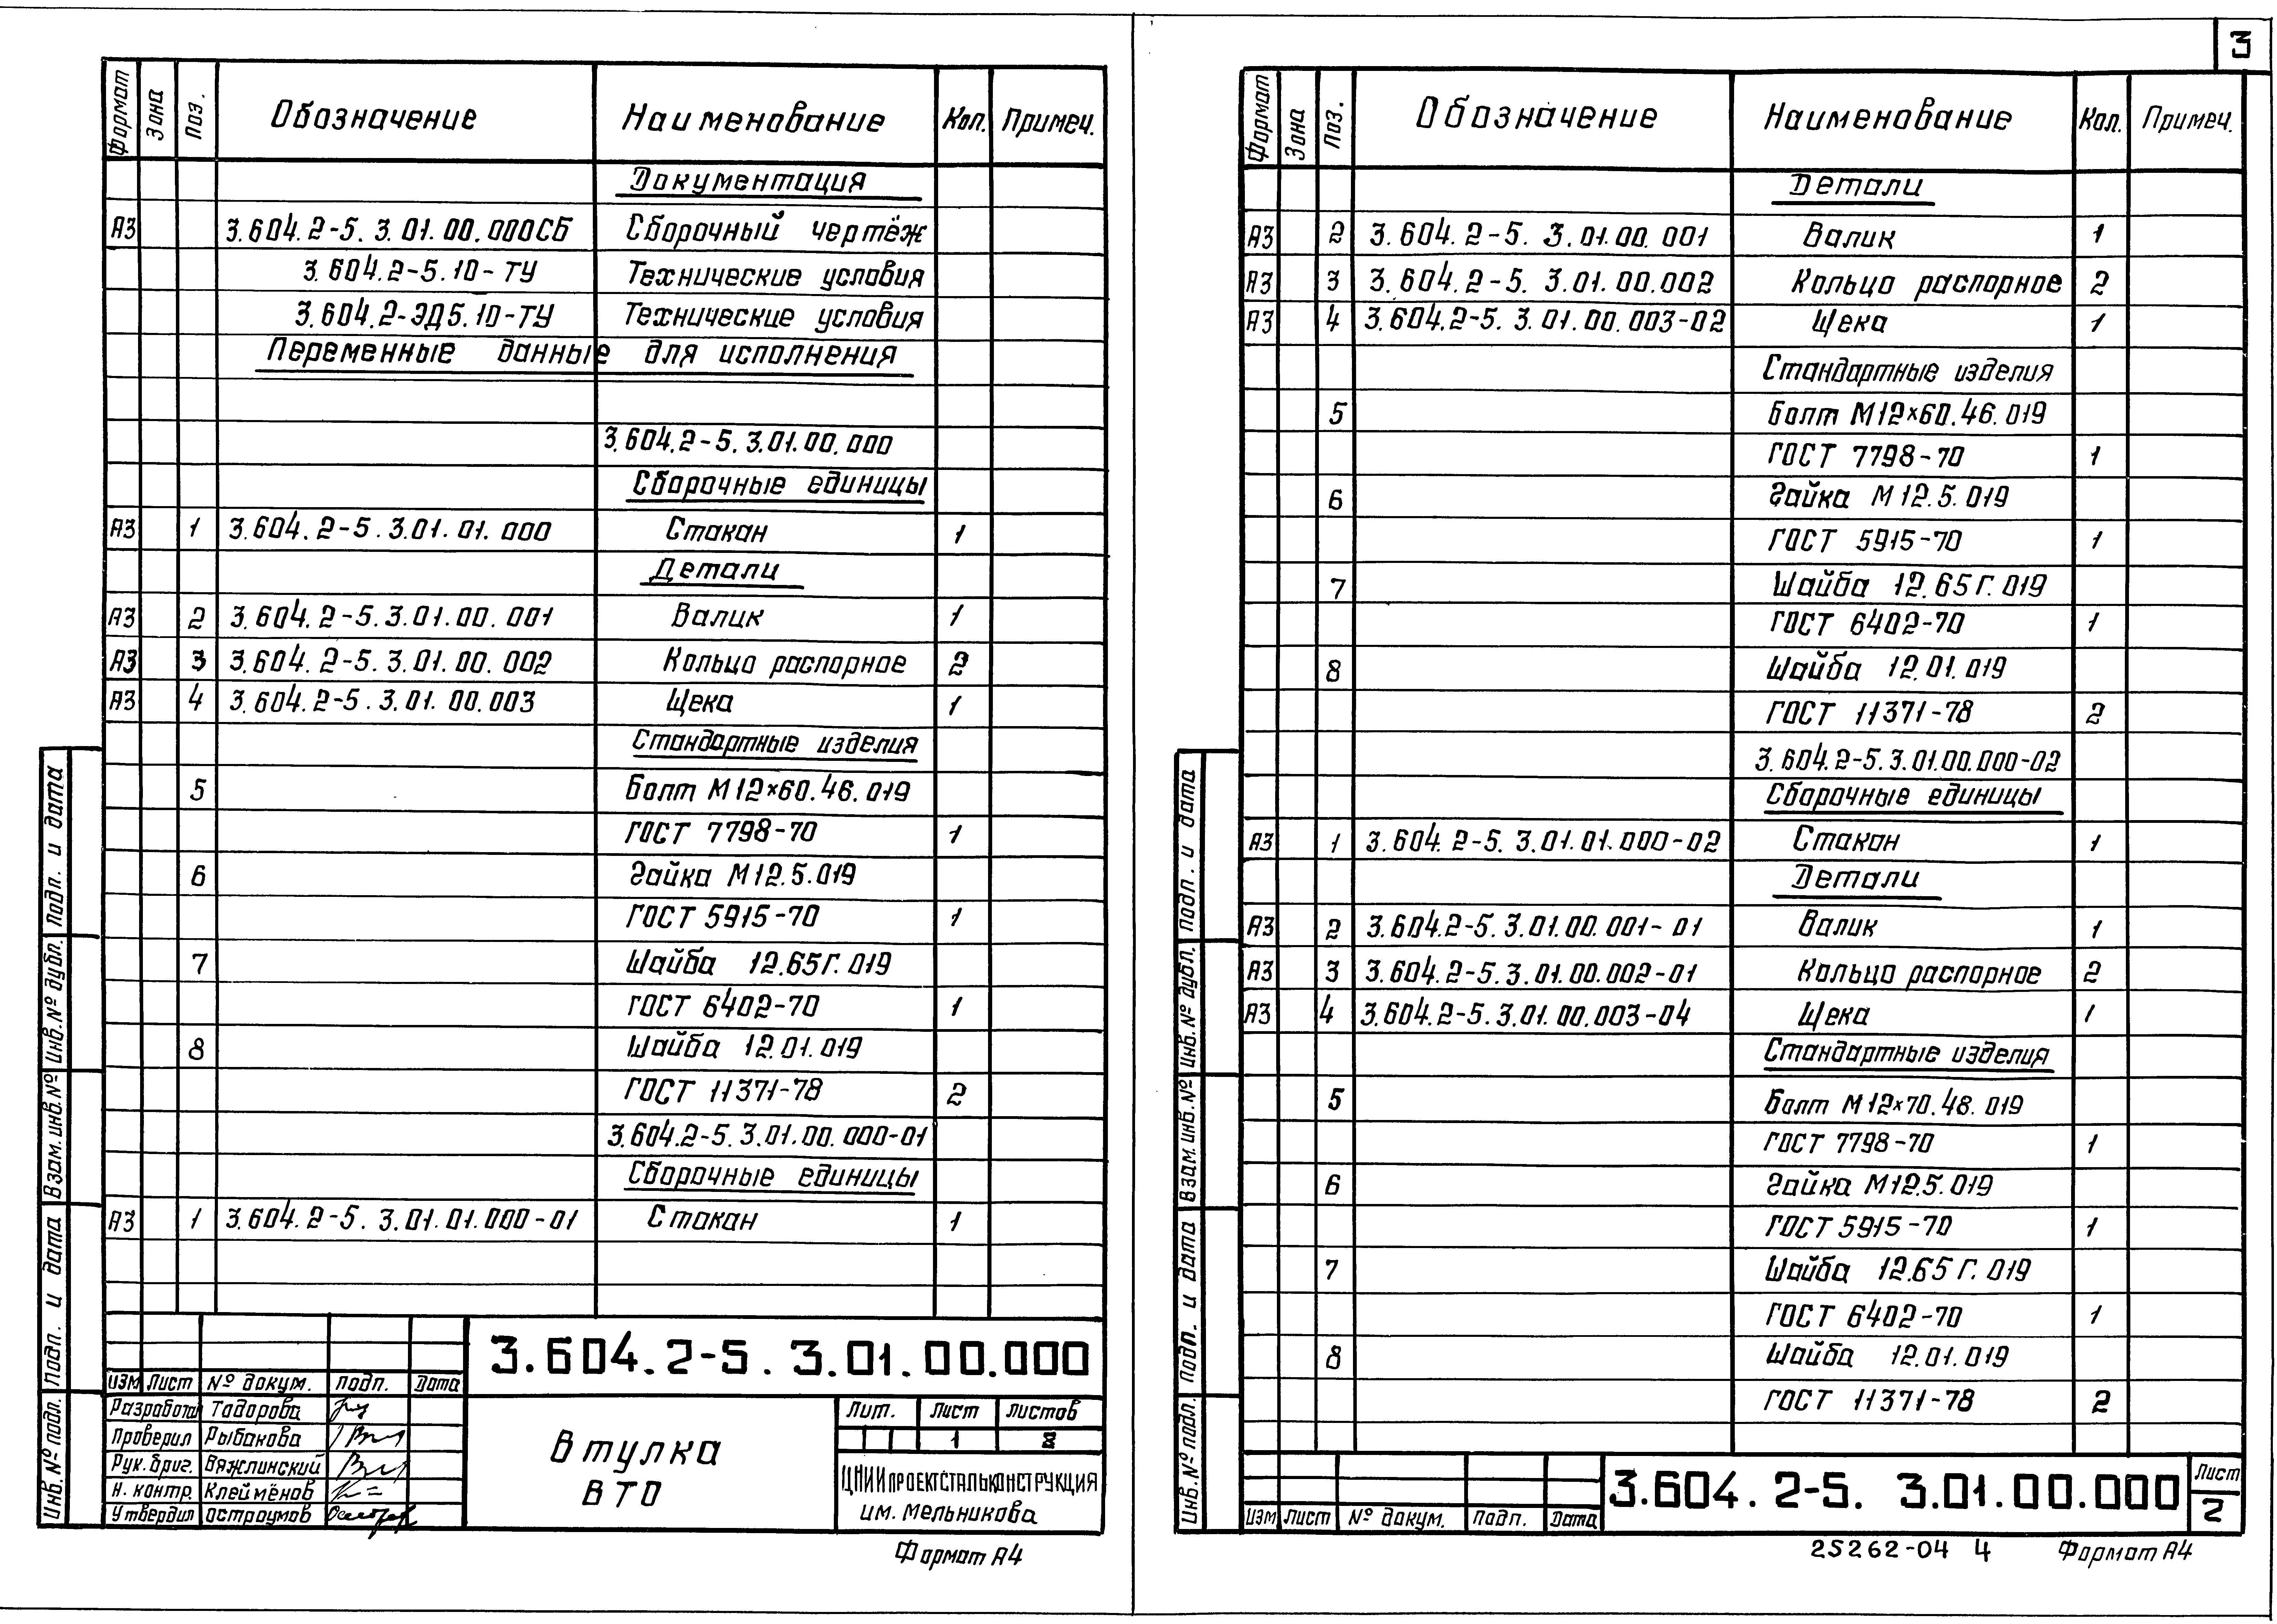 Формат Зона Поз. Обозначение Наименование Кол. Примеч.
Документация
А3 3.604.2-5.3.01.00.000СБ Сборочный чертёж
3.604.2-5.10-ТУ Технические условия
3.604.2-ЭД5.10-ТУ Технические условия
Переменные данные для исполнения
3.604.2-5.3.01.00.000
Сборочные единицы
А3 1 3.604.2-5.3.01.01.000 Стакан 1
Детали
А3 2 3.604.2-5.3.01.00.001 Валик 1
А3 3 3.604.2-5.3.01.00.002 Кольцо распорное 2
А3 4 3.604.2-5.3.01.00.003 Щека 1
Стандартные изделия
5 Болт М12×60.46.019
ГОСТ 7798-70 1
6 Гайка М12.5.019
ГОСТ 5915-70 1
7 Шайба 12.65Г.019
ГОСТ 6402-70 1
8 Шайба 12.01.019
ГОСТ 11371-78 2
3.604.2-5.3.01.00.000-01
Сборочные единицы
А3 1 3.604.2-5.3.01.01.000-01 Стакан 1
Инв.№ подл. Подп. и дата Взам.инв.№ Инв.№ дубл. Подп. и дата
3.604.2-5.3.01.00.000
Изм Лист № докум. Подп. Дата
Разработал Тодорова
Проверил Рыбакова
Рук. бриг. Вяжлинский
Н. контр. Клеймёнов
Утвердил Остроумов
Втулка
ВТО
Лит. Лист Листов
1
ЦНИИПРОЕКТСТАЛЬКОНСТРУКЦИЯ
им. Мельникова
Формат А4
3
Формат Зона Поз. Обозначение Наименование Кол. Примеч.
Детали
А3 2 3.604.2-5.3.01.00.001 Валик 1
А3 3 3.604.2-5.3.01.00.002 Кольцо распорное 2
А3 4 3.604.2-5.3.01.00.003-02 Щека 1
Стандартные изделия
5 Болт М12×60.46.019
ГОСТ 7798-70 1
6 Гайка М12.5.019
ГОСТ 5915-70 1
7 Шайба 12.65Г.019
ГОСТ 6402-70 1
8 Шайба 12.01.019
ГОСТ 11371-78 2
3.604.2-5.3.01.00.000-02
Сборочные единицы
А3 1 3.604.2-5.3.01.01.000-02 Стакан 1
Детали
А3 2 3.604.2-5.3.01.00.001-01 Валик 1
А3 3 3.604.2-5.3.01.00.002-01 Кольцо распорное 2
А3 4 3.604.2-5.3.01.00.003-04 Щека 1
Стандартные изделия
5 Болт М12×70.48.019
ГОСТ 7798-70 1
6 Гайка М12.5.019
ГОСТ 5915-70 1
7 Шайба 12.65Г.019
ГОСТ 6402-70 1
8 Шайба 12.01.019
ГОСТ 11371-78 2
Инв.№ подл. Подп. и дата Взам.инв.№ Инв.№ дубл. Подп. и дата
Изм Лист № докум. Подп. Дата
3.604.2-5.3.01.00.000
Лист
2
25262-04 4 Формат А4